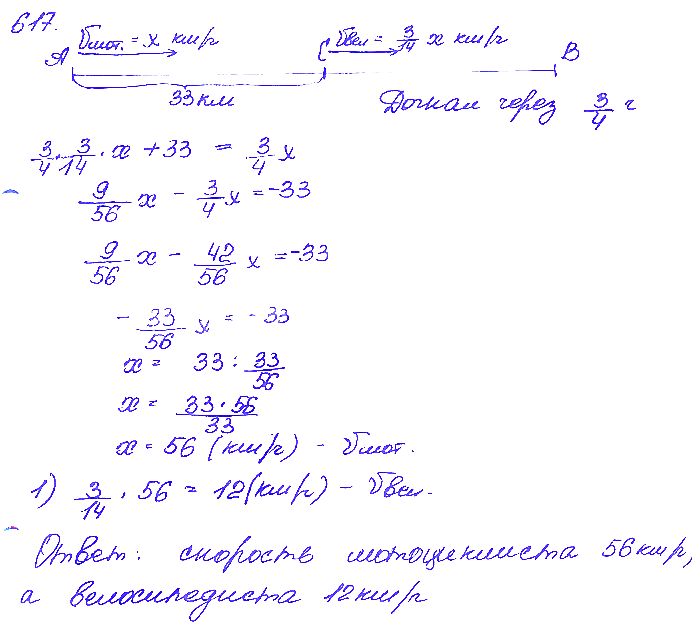 617.
A Vмот. = x км/ч C Vвел = 3/14 x км/ч B
33 км Догнал через 3/4 ч
3/4 · 3/14 · x + 33 = 3/4 x
9/56 x - 3/4 x = -33
9/56 x - 42/56 x = -33
- 33/56 x = - 33
x = 33 : 33/56
x = 33 · 56/33
x = 56 (км/ч) - Vмот.
1) 3/14 · 56 = 12 (км/ч) - Vвел.
Ответ: скорость мотоциклиста 56 км/ч,
а велосипедиста 12 км/ч